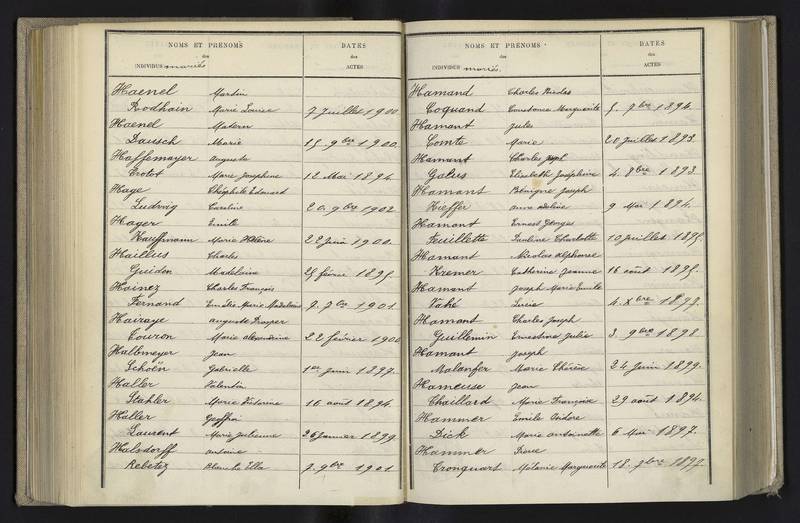 NOMS ET PRÉNOMS
des
INDIVIDUS mariés
DATES
des
ACTES
Haenel Martin
Rodhain Marie Louise 7 Juillet 1900
Haenel Matern
Dausch Marie 15. 9bre 1900.
Haffemayer Auguste
Crotot Marie Josephine 12 Mai 1894
Hage Théophile Edouard
Ludwig Caroline 20. 9bre 1902
Hager Emile
Kauffmann Marie Hélène 22 Juin 1900.
Haillus Charles
Guidon Madeleine 25 février 1895.
Hainez Charles François
Fernand Emélie Marie Madeleine 7. 7bre 1901.
Hairaye Auguste Prosper
Couron Marie Alexandrine 22 février 1900
Halbmeyer Jean
Schoën Gabrielle 1er Juin 1897.
Haller Valentin
Stahler Marie Victorine 16 août 1894.
Haller Geoffroi
Laurent Marie Julienne 26 Janvier 1899.
Halsdorff Antoine
Rebetez Blanche Ella 7. 9bre 1901
NOMS ET PRÉNOMS
des
INDIVIDUS mariés.
DATES
des
ACTES
Hamand Charles Nicolas
Coquand Constance Marguerite 5. 7bre 1894.
Hamant Jules
Comte Marie 20 Juillet 1893.
Hamant Charles
Galus Elisabeth Joséphine 4. 8bre 1893
Hamant Bénigne Joseph
Kieffer Anne Adeline 9 Mai 1894.
Hamant Ernest Georges
Feuillette Pauline Charlotte 10 Juillet 1895.
Hamant Nicolas Alphonse
Kremer Catherine Jeanne 16 août 1895.
Hamant Joseph Marie Emile
Vahé Lucie 4. Xbre 1897.
Hamant Charles Joseph
Guillemin Ernestine Julie 3. 9bre 1898
Hamant Joseph
Malanfer Marie Thérèse 24 Juin 1899.
Hameuse Jean
Chaillard Marie Françoise 29 août 1894.
Hammer Emile Isidore
Dick Marie Antoinette 6 Mai 1897.
Hammer Pierre
Cronquart Mélanie Marguerite 18. 7bre 1897